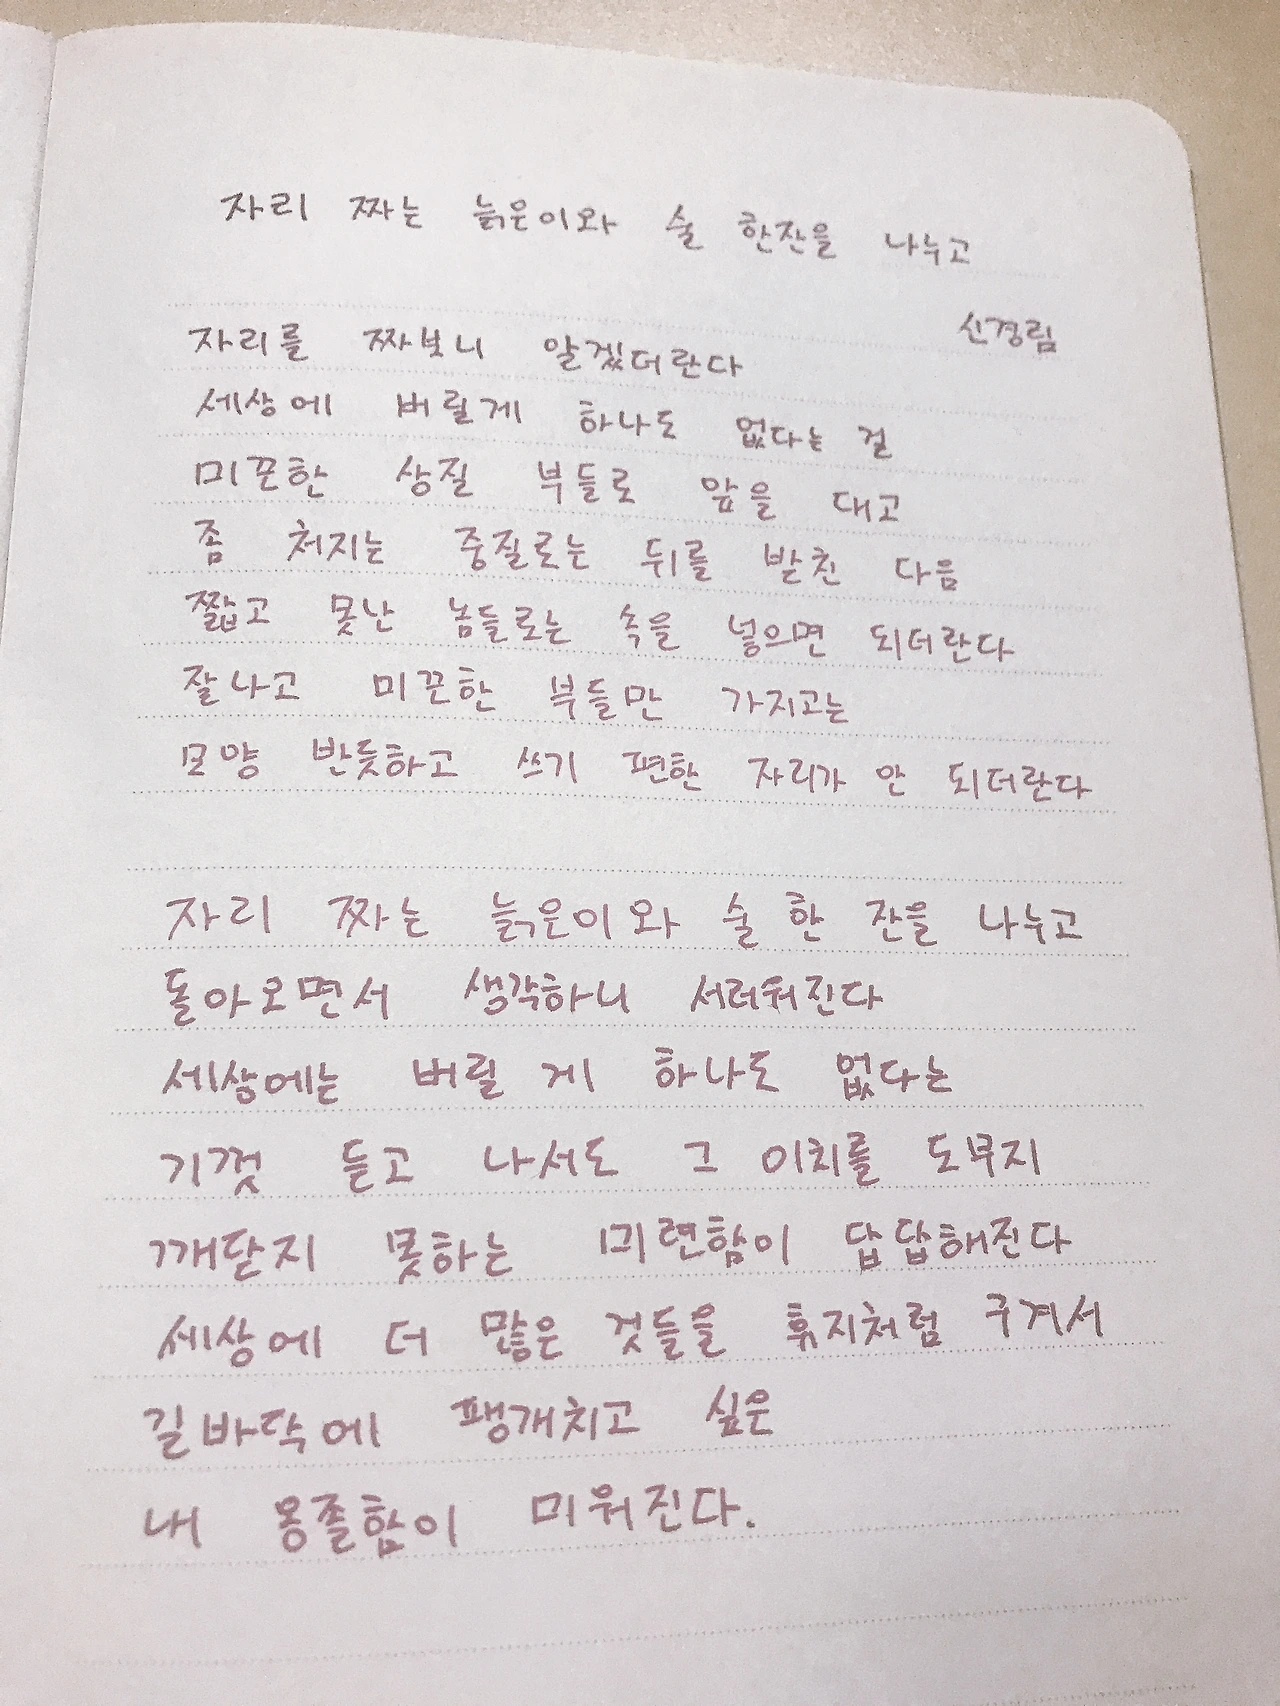 자리 짜는 늙은이와 술 한잔을 나누고
신경림
자리를 짜보니 알겠더란다
세상에 버릴게 하나도 없다는 걸
미끈한 상질 부들로 앞을 대고
좀 처지는 중질로는 뒤를 받친 다음
짧고 못난 놈들로는 속을 넣으면 되더란다
잘나고 미끈한 부들만 가지고는
모양 반듯하고 쓰기 편한 자리가 안 되더란다
자리 짜는 늙은이와 술 한 잔을 나누고
돌아오면서 생각하니 서러워진다
세상에는 버릴 게 하나도 없다는
기껏 듣고 나서도 그 이치를 도무지
깨닫지 못하는 미련함이 답답해진다
세상에 더 많은 것들을 휴지처럼 구겨서
길바닥에 팽개치고 싶은
내 옹졸함이 미워진다.